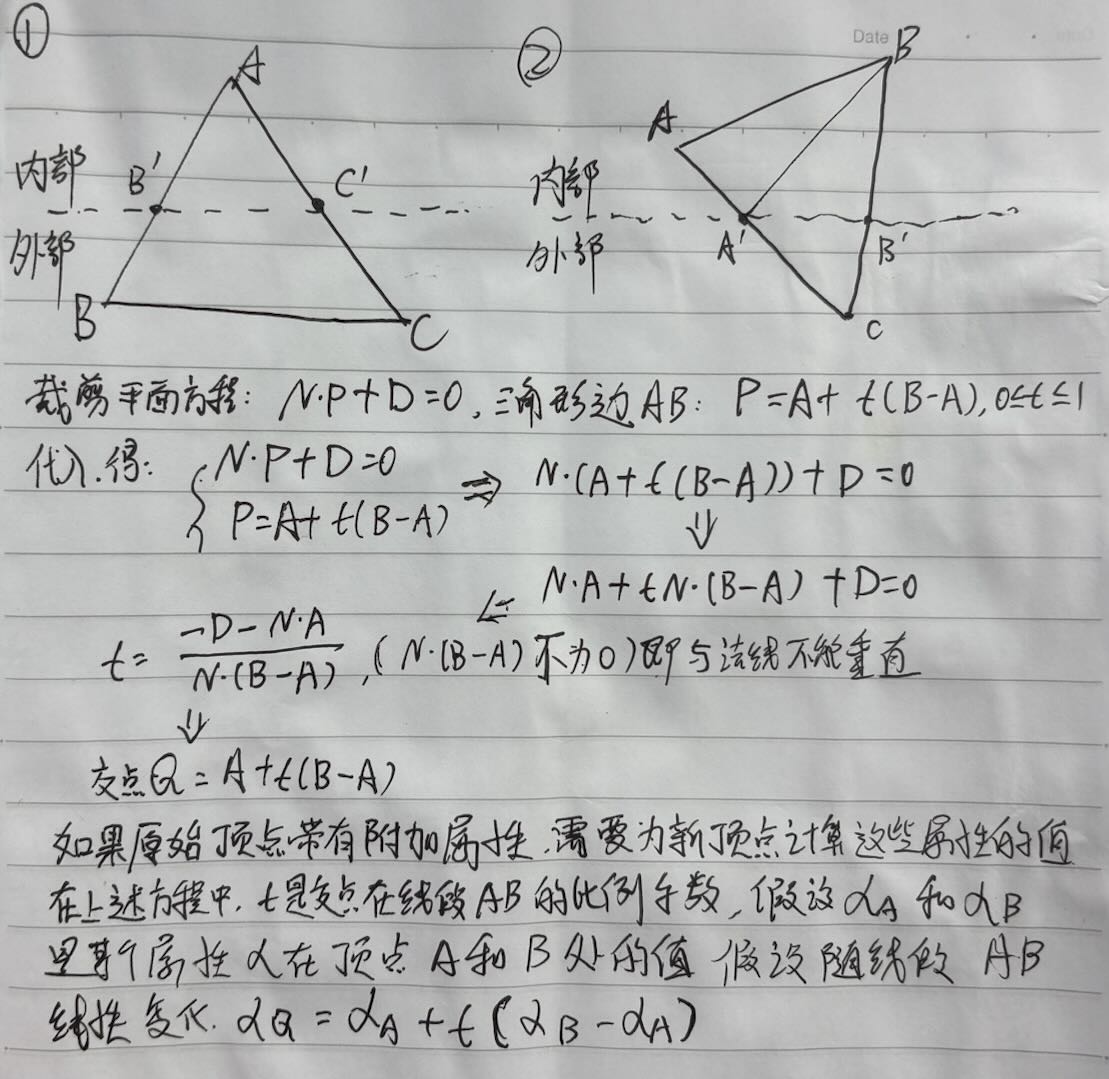 ①
A
内部 B' C'
外部
B C
②
Date B
A
内部
外部 A' B'
C
裁剪平面方程: N·P+D=0, 三角形边AB: P=A+t(B-A), 0≤t≤1
代入.得: { N·P+D=0
P=A+t(B-A) ⇒ N·(A+t(B-A))+D=0
⇓
⇐ N·A+tN·(B-A)+D=0
t= (-D-N·A)/(N·(B-A)), (N·(B-A)不为0)即与法线不能垂直
⇓
交点Q=A+t(B-A)
如果原始顶点带有附加属性.需要为新顶点计算这些属性的值
在上述方程中.t是交点在线段AB的比例参数,假设αA和αB
是某个属性α在顶点A和B处的值 假设随线段AB
线性变化. αQ=αA+t(αB-αA)